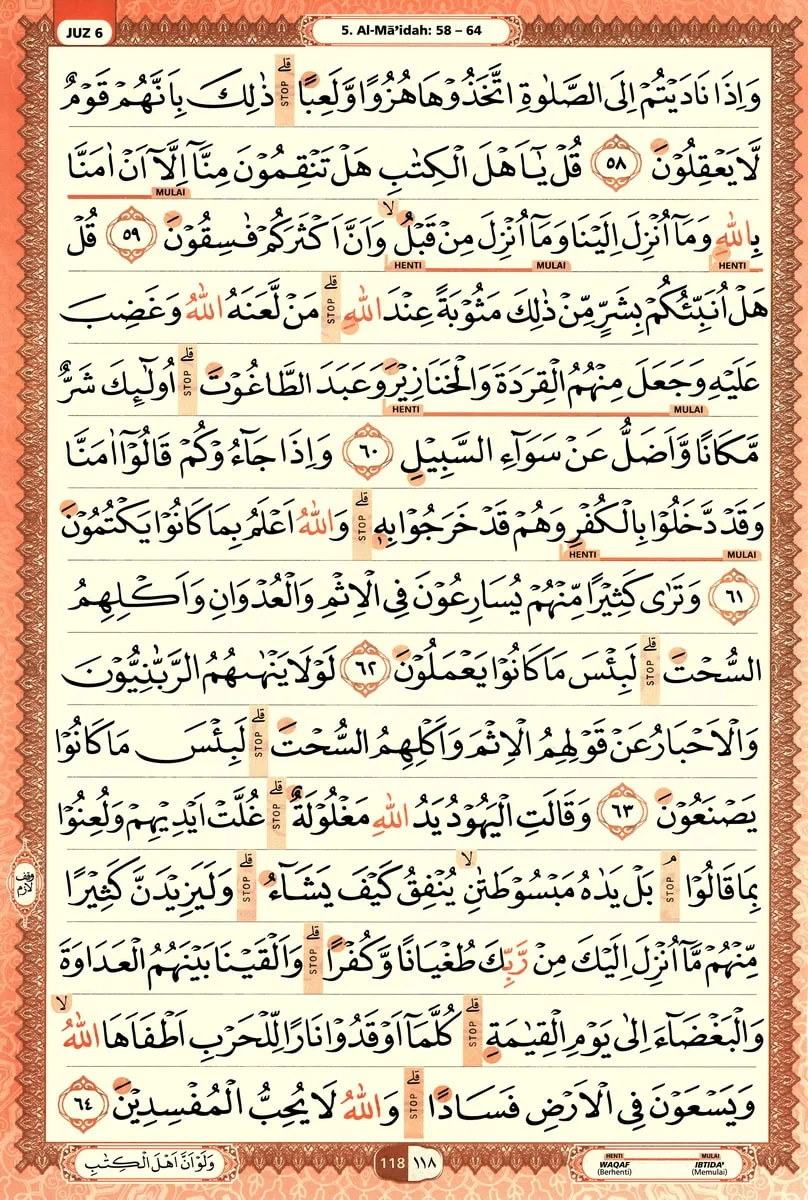 JUZ 6
5. Al-Mā'idah: 58 – 64
وَاِذَا نَادَيْتُمْ اِلَى الصَّلٰوةِ اتَّخَذُوْهَا هُزُوًا وَّلَعِبًا ۗ STOP ذٰلِكَ بِاَنَّهُمْ قَوْمٌ
لَّا يَعْقِلُوْنَ ٥٨ قُلْ يٰٓاَهْلَ الْكِتٰبِ هَلْ تَنْقِمُوْنَ مِنَّآ اِلَّآ اَنْ اٰمَنَّا
MULAI
بِاللّٰهِ وَمَآ اُنْزِلَ اِلَيْنَا وَمَآ اُنْزِلَ مِنْ قَبْلُ ۙ وَاَنَّ اَكْثَرَكُمْ فٰسِقُوْنَ ٥٩ قُلْ
HENTI MULAI HENTI
هَلْ اُنَبِّئُكُمْ بِشَرٍّ مِّنْ ذٰلِكَ مَثُوْبَةً عِنْدَ اللّٰهِ ۗ STOP مَنْ لَّعَنَهُ اللّٰهُ وَغَضِبَ
عَلَيْهِ وَجَعَلَ مِنْهُمُ الْقِرَدَةَ وَالْخَنَازِيْرَ وَعَبَدَ الطَّاغُوْتَ ۗ STOP اُولٰۤىِٕكَ شَرٌّ
HENTI MULAI
مَّكَانًا وَّاَضَلُّ عَنْ سَوَاۤءِ السَّبِيْلِ ٦٠ وَاِذَا جَاۤءُوْكُمْ قَالُوْٓا اٰمَنَّا
وَقَدْ دَّخَلُوْا بِالْكُفْرِ وَهُمْ قَدْ خَرَجُوْا بِهٖ ۗ STOP وَاللّٰهُ اَعْلَمُ بِمَا كَانُوْا يَكْتُمُوْنَ
HENTI MULAI
٦١ وَتَرٰى كَثِيْرًا مِّنْهُمْ يُسَارِعُوْنَ فِى الْاِثْمِ وَالْعُدْوَانِ وَاَكْلِهِمُ
السُّحْتَ ۗ STOP لَبِئْسَ مَا كَانُوْا يَعْمَلُوْنَ ٦٢ لَوْلَا يَنْهٰىهُمُ الرَّبّٰنِيُّوْنَ
وَالْاَحْبَارُ عَنْ قَوْلِهِمُ الْاِثْمَ وَاَكْلِهِمُ السُّحْتَ ۗ STOP لَبِئْسَ مَا كَانُوْا
يَصْنَعُوْنَ ٦٣ وَقَالَتِ الْيَهُوْدُ يَدُ اللّٰهِ مَغْلُوْلَةٌ ۗ STOP غُلَّتْ اَيْدِيْهِمْ وَلُعِنُوْا
بِمَا قَالُوْا ۘ STOP بَلْ يَدٰهُ مَبْسُوْطَتٰنِ ۙ يُنْفِقُ كَيْفَ يَشَاۤءُ ۗ STOP وَلَيَزِيْدَنَّ كَثِيْرًا
وقف لازم
مِّنْهُمْ مَّآ اُنْزِلَ اِلَيْكَ مِنْ رَّبِّكَ طُغْيَانًا وَّكُفْرًا ۗ STOP وَاَلْقَيْنَا بَيْنَهُمُ الْعَدَاوَةَ
وَالْبَغْضَاۤءَ اِلٰى يَوْمِ الْقِيٰمَةِ ۗ STOP كُلَّمَآ اَوْقَدُوْا نَارًا لِّلْحَرْبِ اَطْفَاَهَا اللّٰهُ ۙ
وَيَسْعَوْنَ فِى الْاَرْضِ فَسَادًا ۗ STOP وَاللّٰهُ لَا يُحِبُّ الْمُفْسِدِيْنَ ٦٤
وَلَوْ اَنَّ اَهْلَ الْكِتٰبِ
118 ١١٨
HENTI MULAI
WAQAF IBTIDA'
(Berhenti) (Memulai)